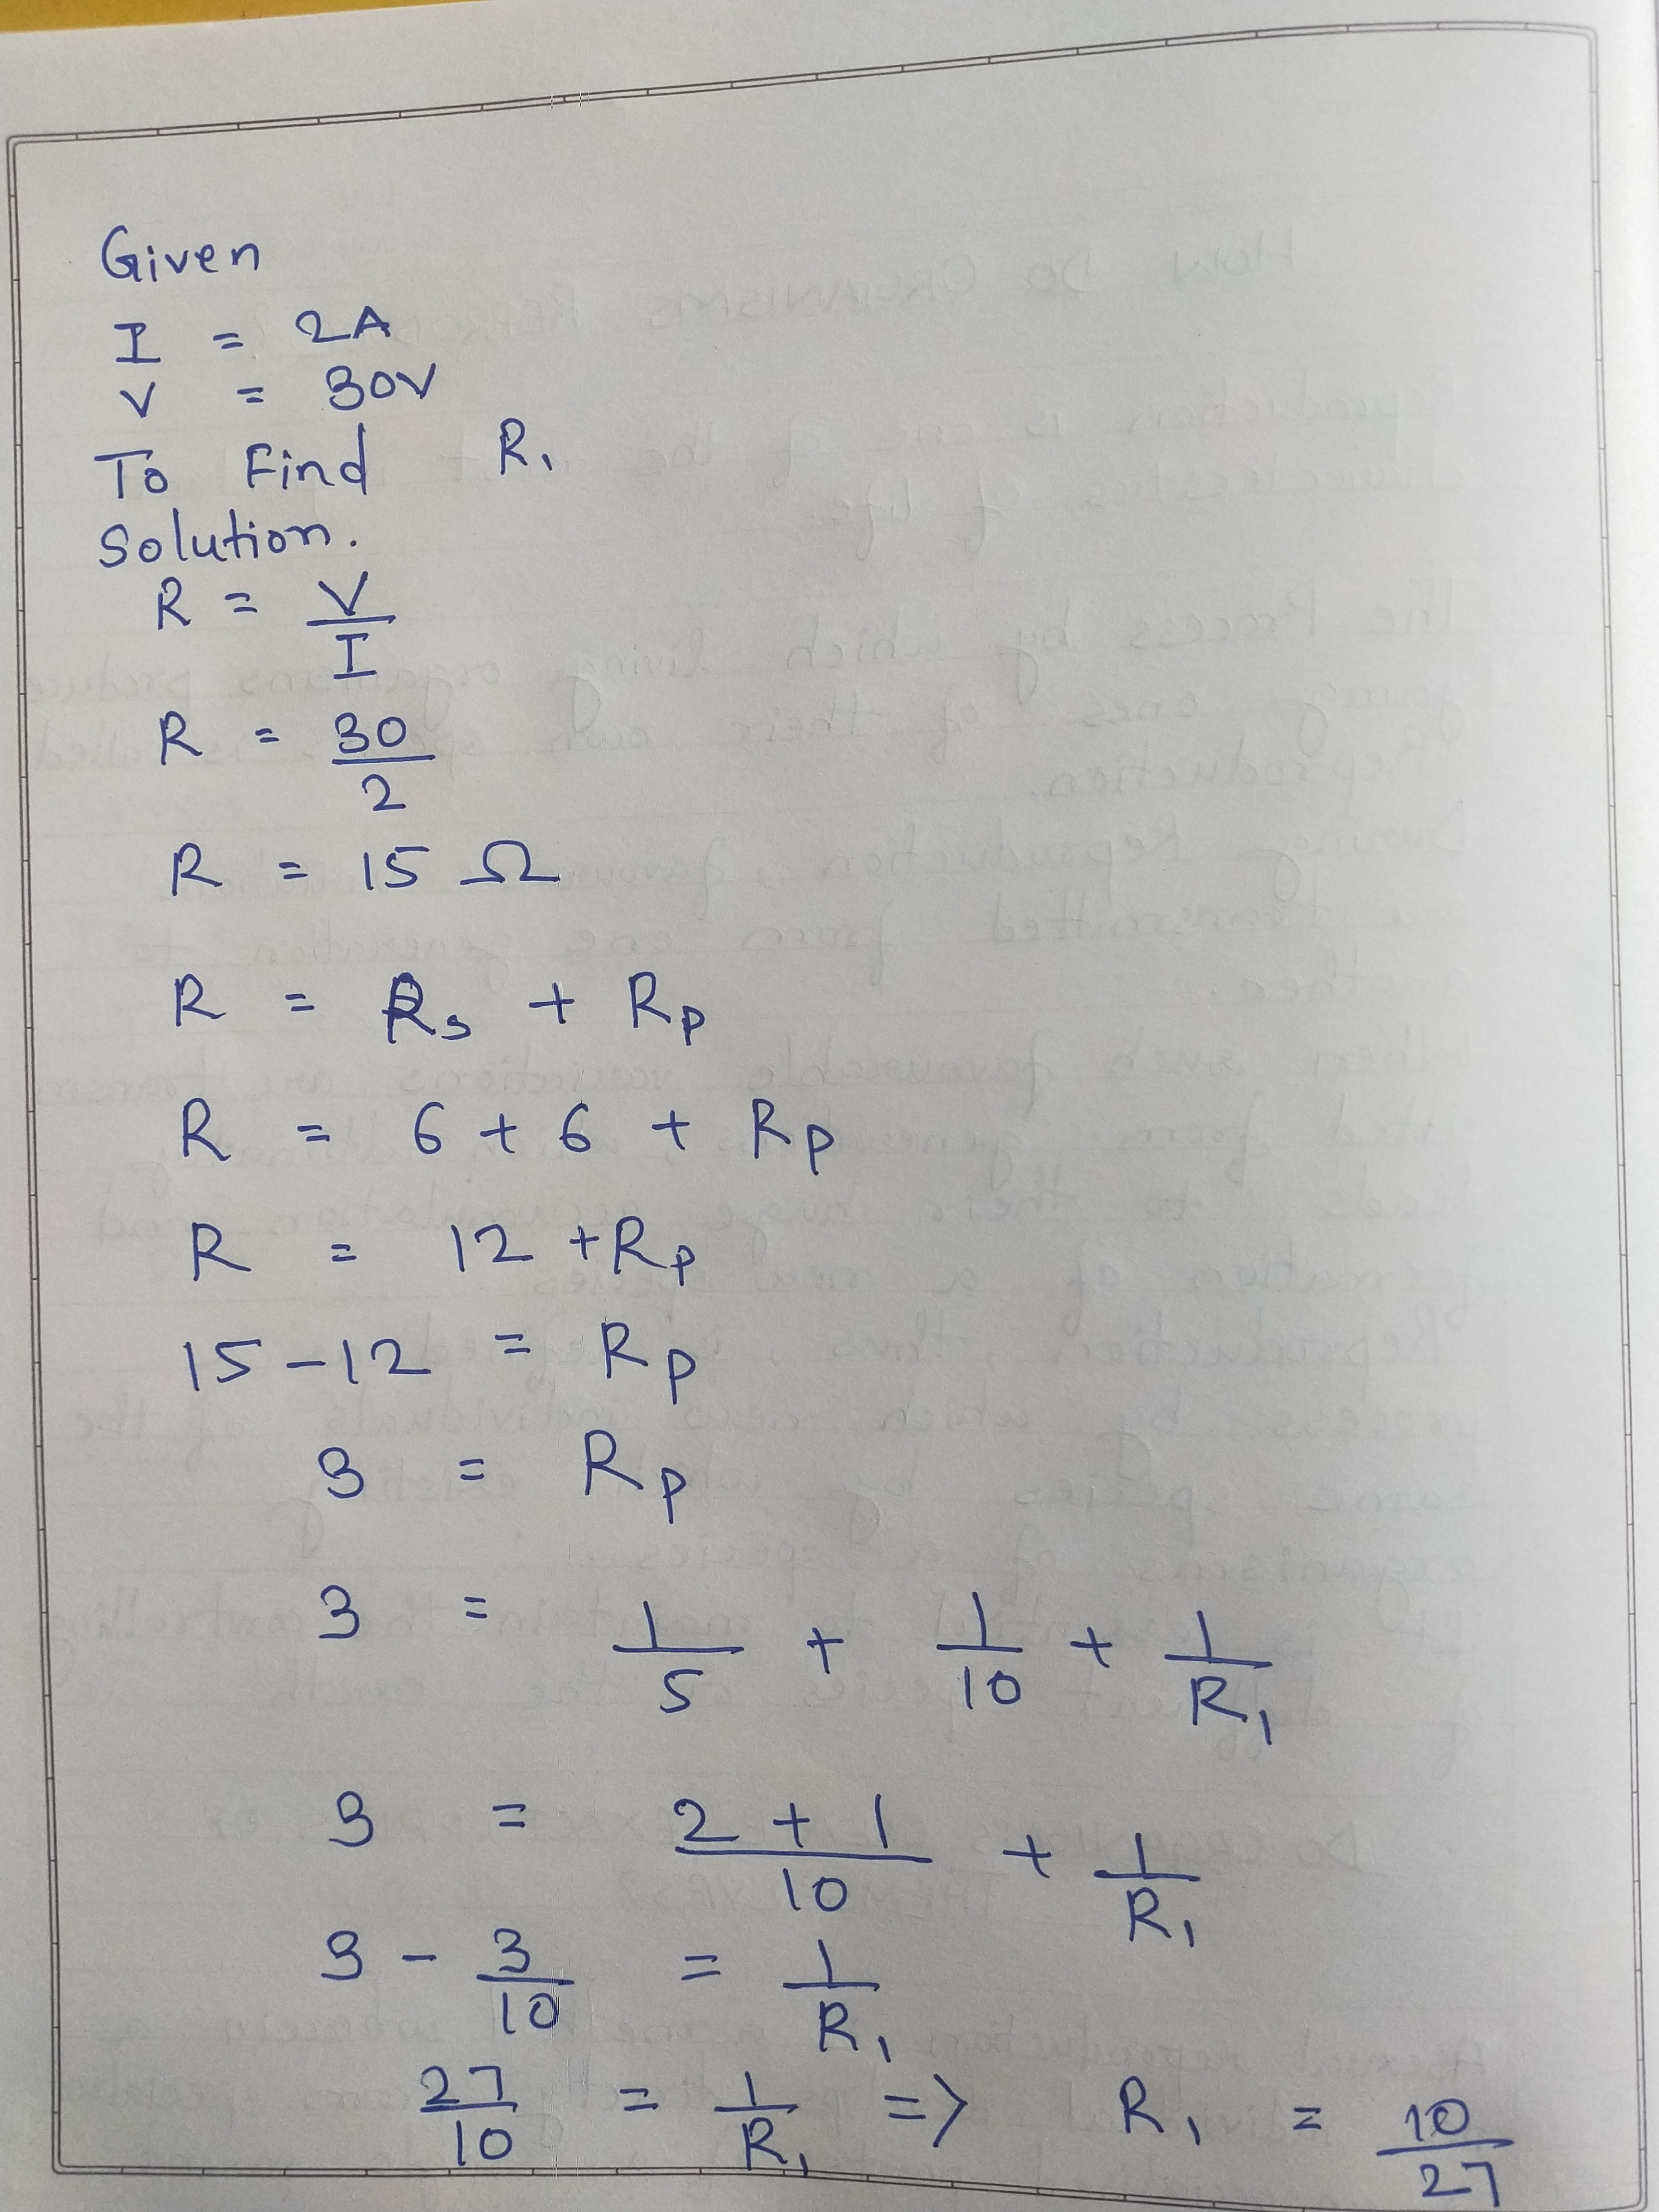 Given
I = 2A
V = 30V
To Find R₁
Solution.
R = V/I
R = 30/2
R = 15 Ω
R = Rs + Rp
R = 6 + 6 + Rp
R = 12 + Rp
15 - 12 = Rp
3 = Rp
3 = 1/5 + 1/10 + 1/R₁
3 = (2 + 1)/10 + 1/R₁
3 - 3/10 = 1/R₁
27/10 = 1/R₁ => R₁ = 10/27